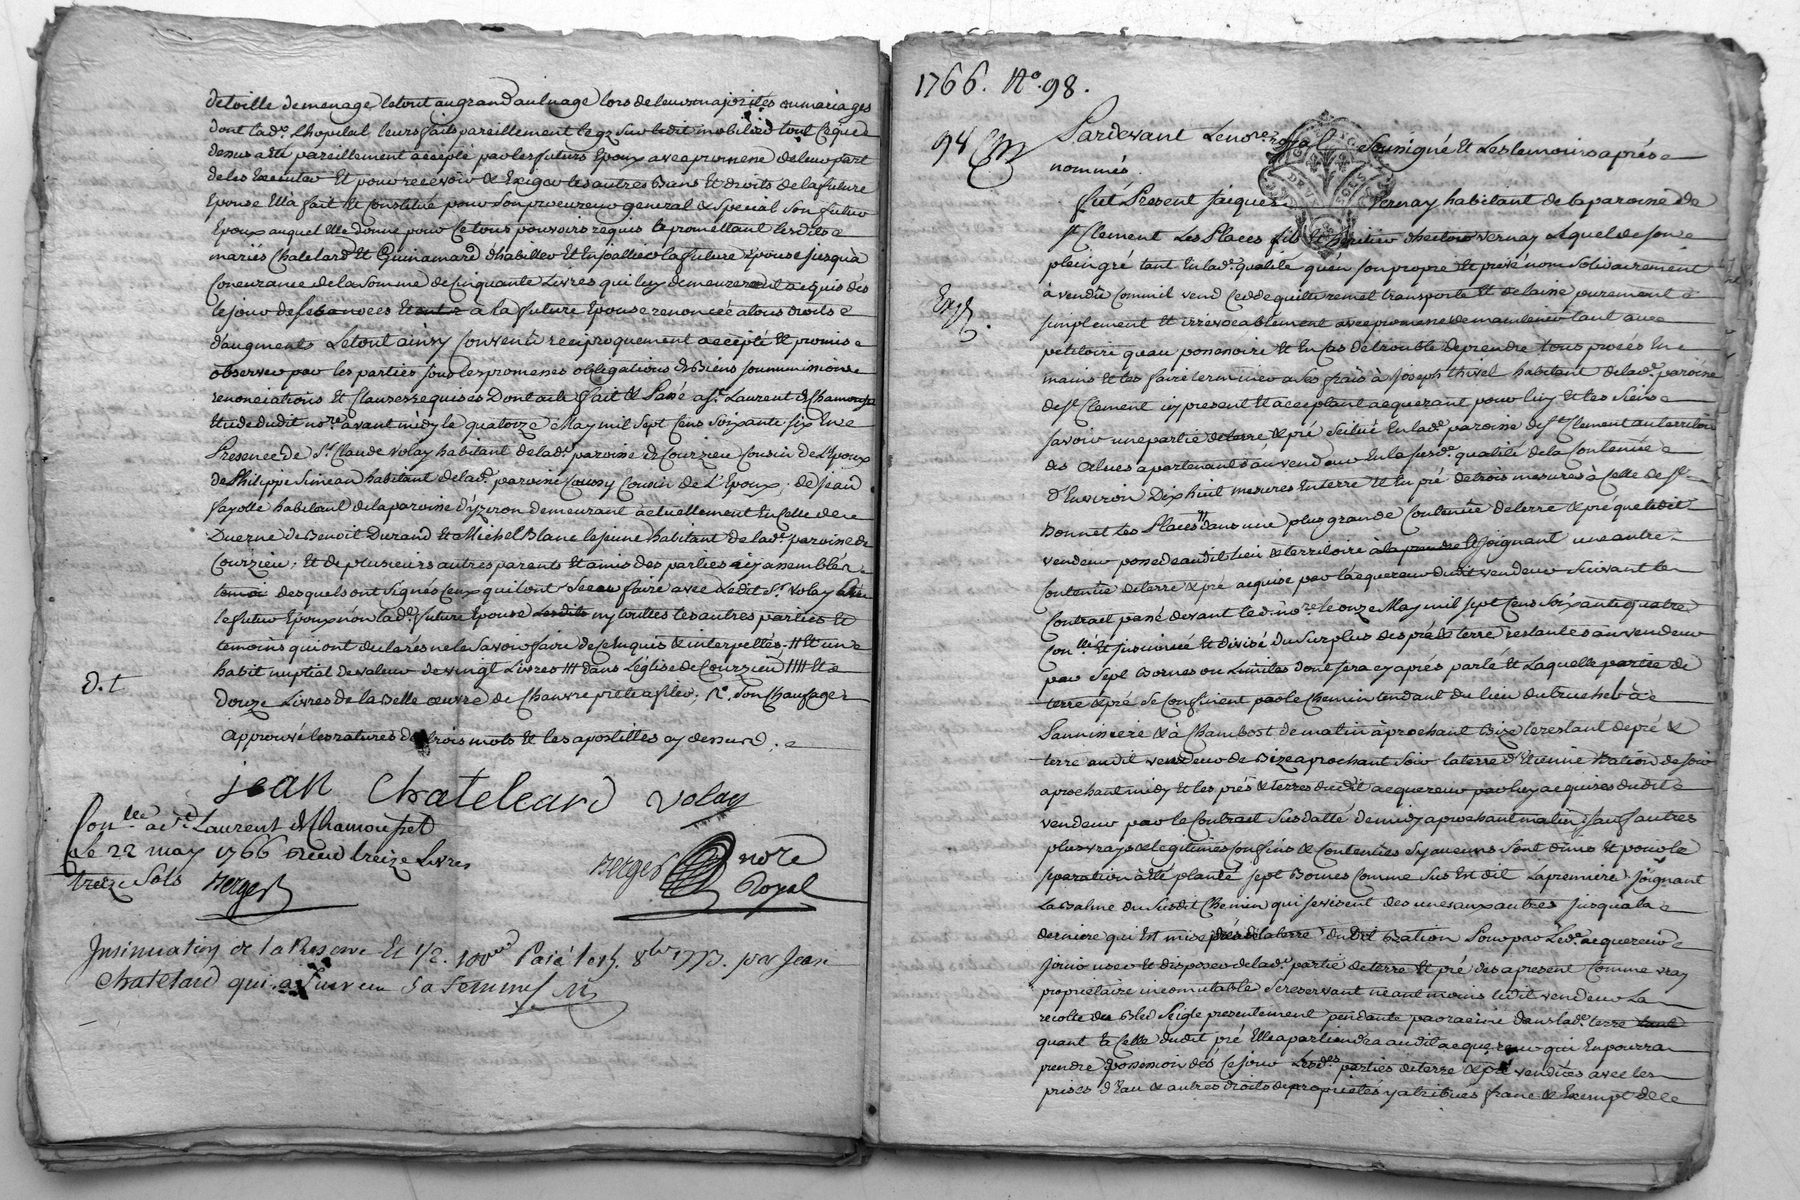 de toille de menage le tout au grand aulnage lors de leurs majorités ou mariages
dont lad.e hopital, leurs faits pareillement le gz sur ledit mobilier tout ce que
dessus a été pareillement accepté par les futurs Epoux avec promesse de leur part
de les Executer Et pour recevoir & Exiger les autres Biens Et droits de la future
Epouse Ella fait Et Constitué pour son procureur general & Special Son futur
Epoux auquel Elle donne pour Ce tous pouvoirs requis Le promettant lesdits
mariés Chatelard Et Guinamard d'habiller Et Enjoallier la future Epouse jusqu'à
Concurance de la somme de Cinquante Livres qui luy demeureront acquis dès
le jour de ses Et a la future Epouse renoncée a tous droits
d'augment Le tout ainsy Convenu reciproquement accépté Et promis
observer par les parties sous les promesses obligations de Biens soumissions
renonciations Et Clauses requises Dont acte fait & Passé a S.t Laurent de Chamousset
Etude dudit no.re avant midy le quatorze May mil Sept Cens Soixante Six En
Presence de S.r Claude Volay habitant de lad.e paroisse de Courzieu Cousin de L'Epoux
de Philippe Simean habitant de lad.e paroisse Cousin de L'Epoux, de Jean
fayolle habitant de la paroisse d'yzeron demeurant actuellement En Celle de
Duerne de Benoit Durand Et Michel Blanc le jeune habitant de lad.e paroisse de
Courzieu, Et de plusieurs autres parents Et amis des parties icy assemblés
desquels ont Signés Ceux qui l'ont Sceu faire avec Ledit S.r Volay
le futur Epoux non lad.e future Epouse Lesdits ny touttes les autres parties Et
temoins qui ont declarés ne le Savoir faire de Ce Enquis & interpellés. // Et un
habit nuptial de valeur de vingt Livres /// dans L'église de Courzieu //// Et
Douze Livres de la Belle œuvre de Chanvre prete a filer,
d.t
Approuvé les ratures de trois mots Et les apostilles cy dessus.
jean Chateleard Volay
Con.llé a S.t Laurent de Chamousset
Le 22 may 1766 receu treize Livres
treize Sols Berger
Berger no.re Royal
Insinuation de la Reserve Et 1/2. 100.me Païé le 8.bre 1773. par Jean
Chatelard qui a Survecu Sa femme
1766. N.o 98.
94
Pardevant Le no.re royal Sousigné Et Les temoins après
nommés.
fut Present Jacques Vernay habitant de la paroisse de
S.t Clement Les Places fils Et heritier Vernay Lequel de son
plein gré tant En lad.e qualité qu'en son propre Et privé nom Solidairement
à vendu Comme il vend Cedde quitte remet transporte Et delaisse purement
Ex.
simplement Et irrevocablement avec promesse de maintenir tant au
petitoire qu'au possessoire & En Cas de trouble de prendre tous procès En
mains Et les faire terminer a Ses frais à Joseph thivel habitant de lad.e paroisse
de S.t Clement icy present Et acceptant acquerant pour luy Et les Siens
savoir une partie de terre & pré Scitué En lad.e paroisse de S.t Clement au territoire
des Alues apartenant au vendeur En la Susd.e qualité de la Contenue
d'Environ Dix huit mesures En terre Et En pré de trois mesures à Celle de S.t
Bonnet Les Places // dans une plus grande Contenue de terre & pré que ledit
vendeur possede audit lieu & territoire à la prendre Et joignant une autre
Contenue de terre & pré acquise par l'acquereur dudit vendeur Suivant Le
Contract passé devant led.t no.re le onze May mil Sept Cens Soixante quatre
Con.llé Et insinué Et divisé du Surplus des pré & terre restantes au vendeur
par Sept Bornes ou Limites dont Sera cy après parlé Et Laquelle partie de
terre & pré Se Confinent par le Chemin tendant du lieu de à
& à Chambost de matin aprochant Bize le restant de pré &
terre audit vendeur de Bize aprochant Soir la terre d'Etienne Bation de soir
aprochant midy Et les prés & terres dudit acquereur par luy acquises dudit
vendeur par le Contract Susdatté de midy aprochant matin Sauf autres
plus vrays & legitimes Confins & Contenues Sy aucuns Sont dûs Et pour la
Separation à Eté planté Sept Bornes Comme Sus Est dit La premiere joignant
La Balme du Susdit Chemin qui se visent des unes aux autres jusqu'à la
derniere qui Est mise près de la terre dudit Bation Pour par Led.t acquereur
jouir user Et disposer de lad.e partie de terre Et pré dès a present Comme vray
propriétaire incommutable Se reservant néantmoins ledit vendeur La
récolte du Bled Seigle presentement pendante par racine dans lad.e terre tant
quant à Celle dudit pré Elle apartiendra audit acquereur qui En pourra
prendre possession dès Ce jour Lesd.es parties de terre & pré vendües avec les
prises d'Eau & autres droits de proprietés y atribués franc & Exempt de